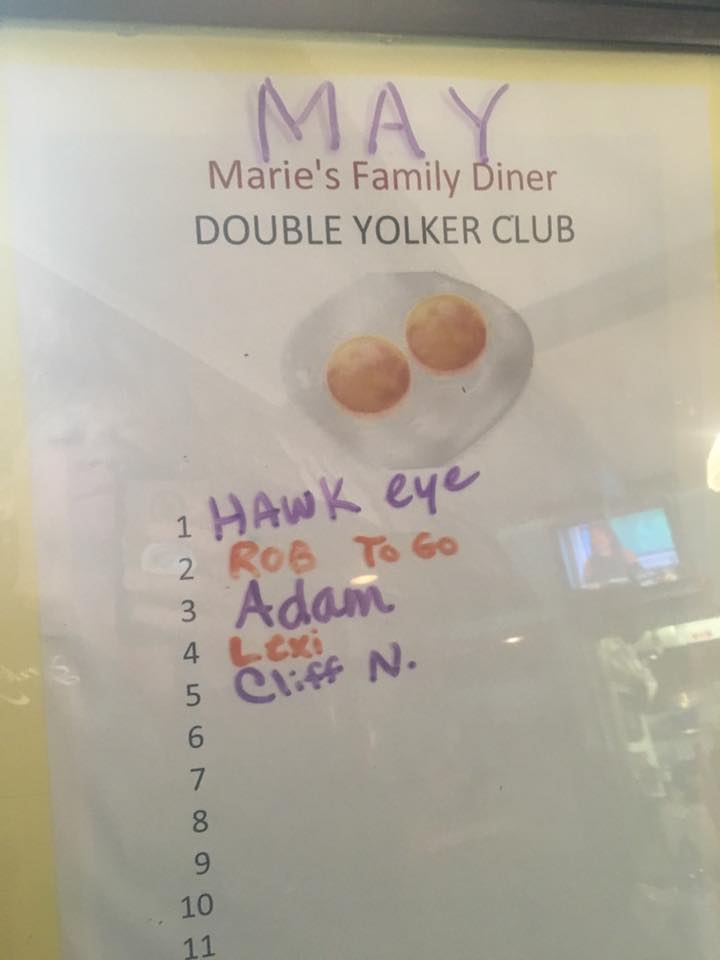 MAY
Marie's Family Diner
DOUBLE YOLKER CLUB
1 HAWK eye
2 ROB TO GO
3 Adam
4 Lexi
5 Cliff N.
6
7
8
9
10
11